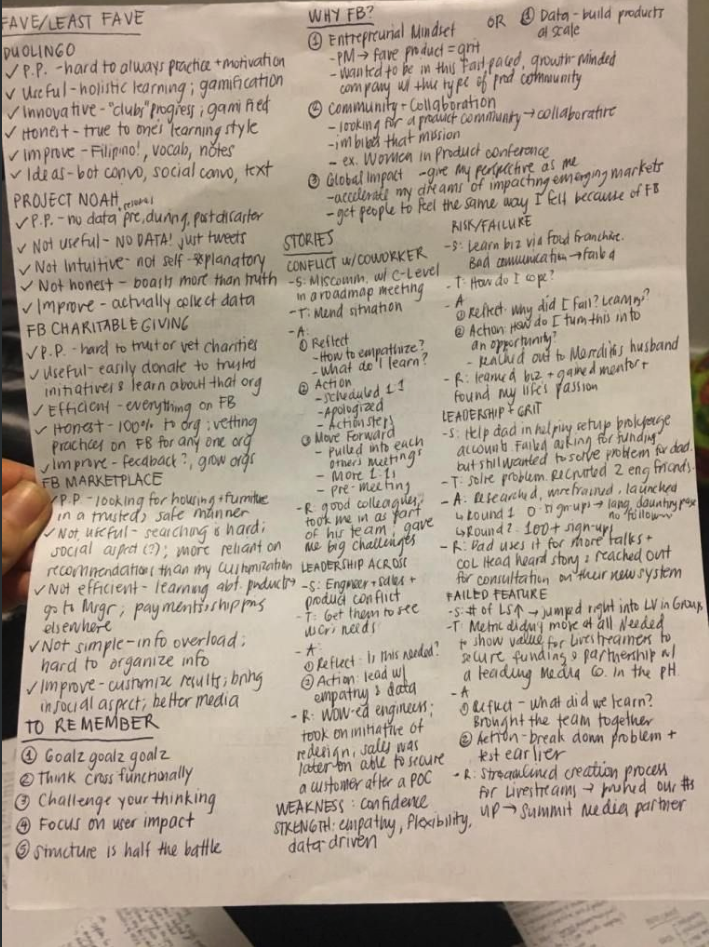 FAVE/LEAST FAVE
DUOLINGO
✓ P.P. - hard to always practice + motivation
✓ Useful - holistic learning; gamification
✓ Innovative - "clubs" progress; gamified
✓ Honest - true to one's learning style
✓ Improve - Filipino!, vocab, notes
✓ Ideas - bot convo, social convo, text
PROJECT NOAH
✓ P.P. - no data pre, during, post disaster
✓ Not useful - NO DATA! just tweets
✓ Not Intuitive - not self-explanatory
✓ Not honest - boasts more than truth
✓ Improve - actually collect data
FB CHARITABLE GIVING
✓ P.P. - hard to trust or vet charities
✓ Useful - easily donate to trusted
initiatives & learn about that org
✓ Efficient - everything on FB
✓ Honest - 100% to org; vetting
practices on FB for any one org
✓ Improve - feedback?, grow orgs
FB MARKETPLACE
✓ P.P - looking for housing + furniture
in a trusted, safe manner
✓ Not useful - searching is hard;
social aspect (?); more reliant on
recommendations than my customization
✓ Not efficient - learning abt. products,
go to Msgr; payments, shipping
elsewhere
✓ Not simple - info overload;
hard to organize info
✓ Improve - customize results; bring
in social aspect; better media
TO REMEMBER
① Goalz goalz goalz
② Think cross functionally
③ Challenge your thinking
④ Focus on user impact
⑤ Structure is half the battle
WHY FB?
① Entrepreneurial Mindset
- PM → fave product = grit
- Wanted to be in this fast paced, growth-minded
company w/ this type of prod community
OR ① Data - build products
at scale
② Community + Collaboration
- looking for a product community → collaborative
- imbibes that mission
- ex. Women in Product conference
③ Global Impact - give my perspective as me
- accelerate my dreams of impacting emerging markets
- get people to feel the same way I felt because of FB
STORIES
CONFLICT W/COWORKER
- S: Miscomm. w/ C-Level
in a roadmap meeting
- T: Mend situation
- A:
① Reflect
- How to empathize?
- What do I learn?
② Action
- Scheduled 1:1
- Apologized
- Action steps
③ Move Forward
- Pulled into each
others meetings
- More 1:1s
- Pre-meeting
- R: good colleagues,
took me in as part
of his team, gave
me big challenges
LEADERSHIP ACROSS
- S: Engineer + sales +
product conflict
- T: Get them to see
user needs
- A:
① Reflect: Is this needed?
② Action: lead w/
empathy & data
- R: WOW-ed engineers;
took on initiative of
redesign, sales was
later on able to secure
a customer after a POC
WEAKNESS: Confidence
STRENGTH: empathy, flexibility,
data-driven
RISK/FAILURE
- S: Learn biz via food franchise.
Bad communication → failed
- T: How do I cope?
- A
① Reflect. Why did I fail? Learng?
② Action: How do I turn this into
an opportunity?
- reached out to husband
- R: learned biz + gained mentor +
found my life's passion
LEADERSHIP + GRIT
- S: Help dad in helping setup brokerage
account. Failed asking for funding.
but still wanted to solve problem for dad.
- T: solve problem. Recruited 2 eng friends.
- A: Researched, wireframed, launched
↳ Round 1 0 sign ups → long, daunting
no follow
↳ Round 2: 100+ sign-ups
- R: Dad uses it for more talks +
COL Head heard story & reached out
for consultation on their new system
FAILED FEATURE
- S: # of LS↑ → jumped right into LV in Group
- T: Metric didn't move at all. Needed
to show value for Livestreamers to
secure funding & partnership w/
a leading Media Co. in the PH
- A
① Reflect - what did we learn?
Brought the team together
② Action - break down problem +
test earlier
- R: Streamlined creation process
for Livestreams → pushed our #s
up → Summit Media partner